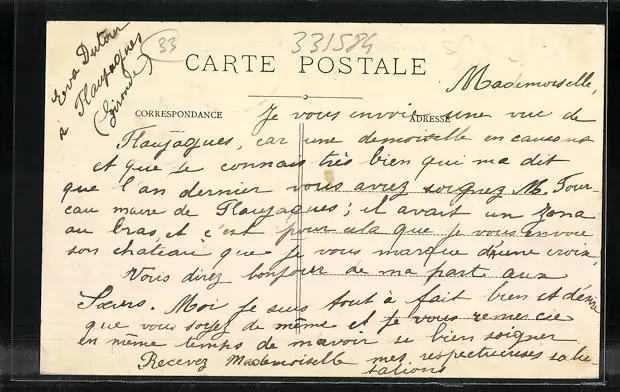 Eva Dutour
à Flaujagues
(Gironde)
33
331584
CARTE POSTALE
CORRESPONDANCE
ADRESSE
Mademoiselle,
Je vous envoie une vue de
Flaujagues, car une demoiselle en causant
et que je connais très bien qui ma dit
que l'an dernier vous aviez soignez M. Four-
cau maire de Flaujagues; il avait un zona
au bras, et c'est pour cela que je vous envoie
son chateau que je vous marque d'une croix,
Vous direz bonjour de ma part aux
Sœurs. Moi je suis tout à fait bien et désire
que vous soyez de même et je vous remercie
en même temps de m'avoir si bien soigner
Recevez Mademoiselle mes respectueuses salu-
tations